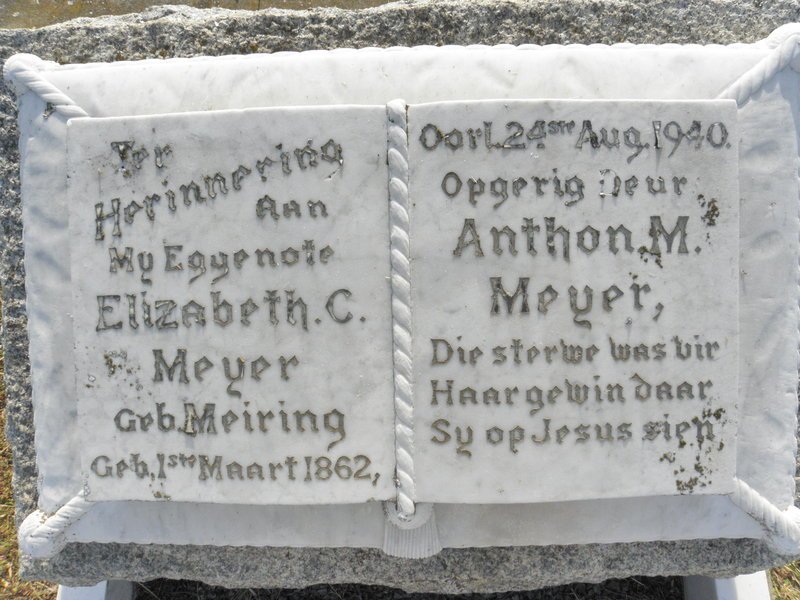 Ter
Herinnering
Aan
My Eggenote
Elizabeth. C.
Meyer
Geb. Meiring
Geb. 1ste Maart 1862,
Oorl. 24ste Aug. 1940.
Opgerig Deur
Anthon. M.
Meyer,
Die sterwe was vir
Haar gewin daar
Sy op Jesus sien